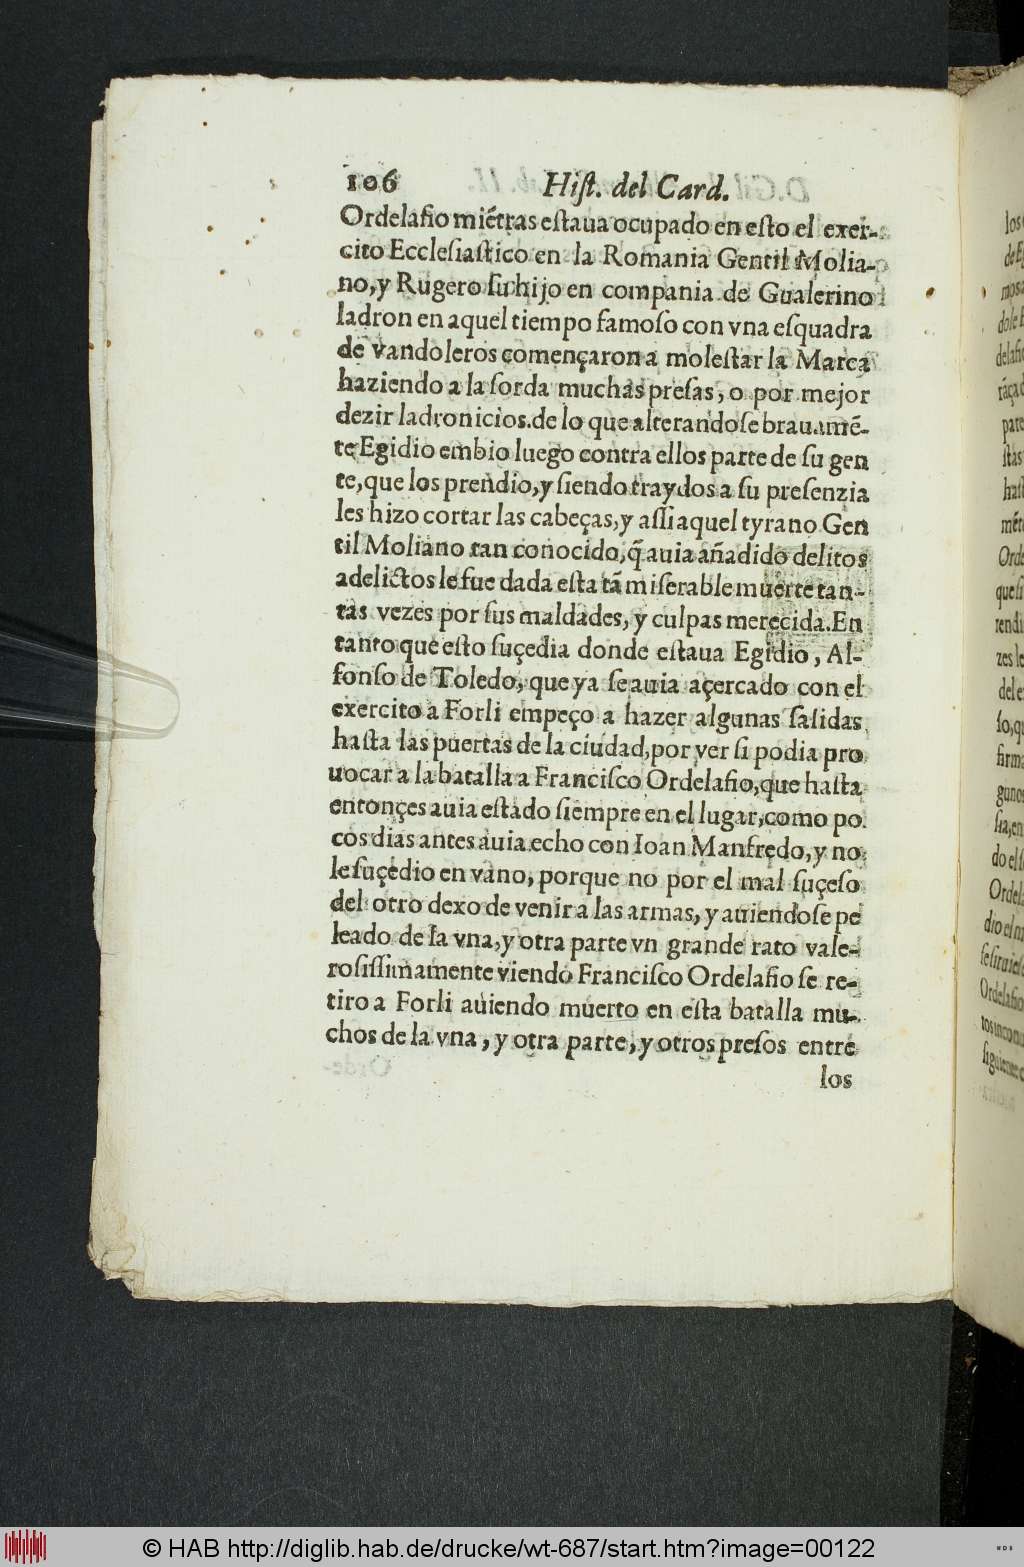 106 Hiſt. del Card.
Ordelafio miẽtras eſtaua ocupado en eſto el exer-
cito Eccleſiaſtico en la Romania Gentil Molia-
no, y Rugero ſu hijo en compania de Gualerino
ladron en aquel tiempo famoſo con vna eſquadra
de vandoleros començaron a moleſtar la Marca
haziendo a la ſorda muchas preſas, o por mejor
dezir ladronicios. de lo que alterandoſe brauamẽ-
te Egidio embio luego contra ellos parte de ſu gen
te, que los prendio, y ſiendo traydos a ſu preſenzia
les hizo cortar las cabeças, y aſſi aquel tyrano Gen
til Moliano tan conocido, q̃ auia añadido delitos
a delictos le fue dada eſta tã miſerable muerte tan-
tas vezes por ſus maldades, y culpas merecida. En
tanto que eſto ſuçedia donde eſtaua Egidio, Al-
fonſo de Toledo, que ya ſe auia açercado con el
exercito a Forli empeço a hazer algunas ſalidas
haſta las puertas de la ciudad, por ver ſi podia pro
uocar a la batalla a Franciſco Ordelafio, que haſta
entonçes auia eſtado ſiempre en el lugar, como po
cos dias antes auia echo con Ioan Manfredo, y no
le ſuçedio en vano, porque no por el mal ſuçeſo
del otro dexo de venir a las armas, y auiendoſe pe
leado de la vna, y otra parte vn grande rato vale-
roſiſſimamente viendo Franciſco Ordelafio ſe re-
tiro a Forli auiendo muerto en eſta batalla mu-
chos de la vna, y otra parte, y otros preſos entre
los
© HAB http://diglib.hab.de/drucke/wt-687/start.htm?image=00122